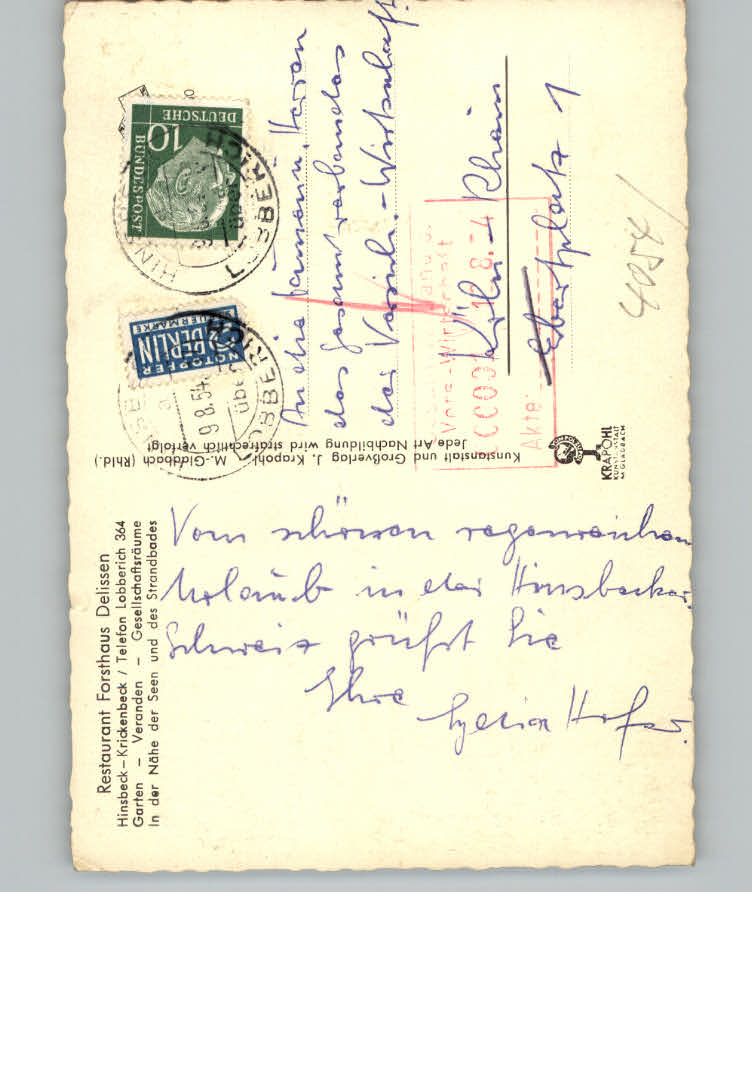 Restaurant Forsthaus Delissen
Hinsbeck – Krickenbeck / Telefon Lobberich 364
Garten – Veranden – Gesellschaftsräume
In der Nähe der Seen und des Strandbades
Vom schönen regenreichen
Urlaub in der Hinsbecker
Schweiz grüßt Sie
Ihre
Hofer
Kunstanstalt und Großverlag J. Krapohl M.-Gladbach (Rhld.)
Jede Art Nachbildung wird strafrechtlich verfolgt
KRAPOHL
KUNSTANSTALT
M. GLADBACH
10
DEUTSCHE
BUNDESPOST
NOTOPFER
2 BERLIN
STEUERMARKE
LOBBERICH
über
9.8.54
An die Damen u. Herren
des Gesamtverbandes
der Versich.-Wirtschaft
Köln-Rhein
Ebertplatz 1
Akte:
4054/